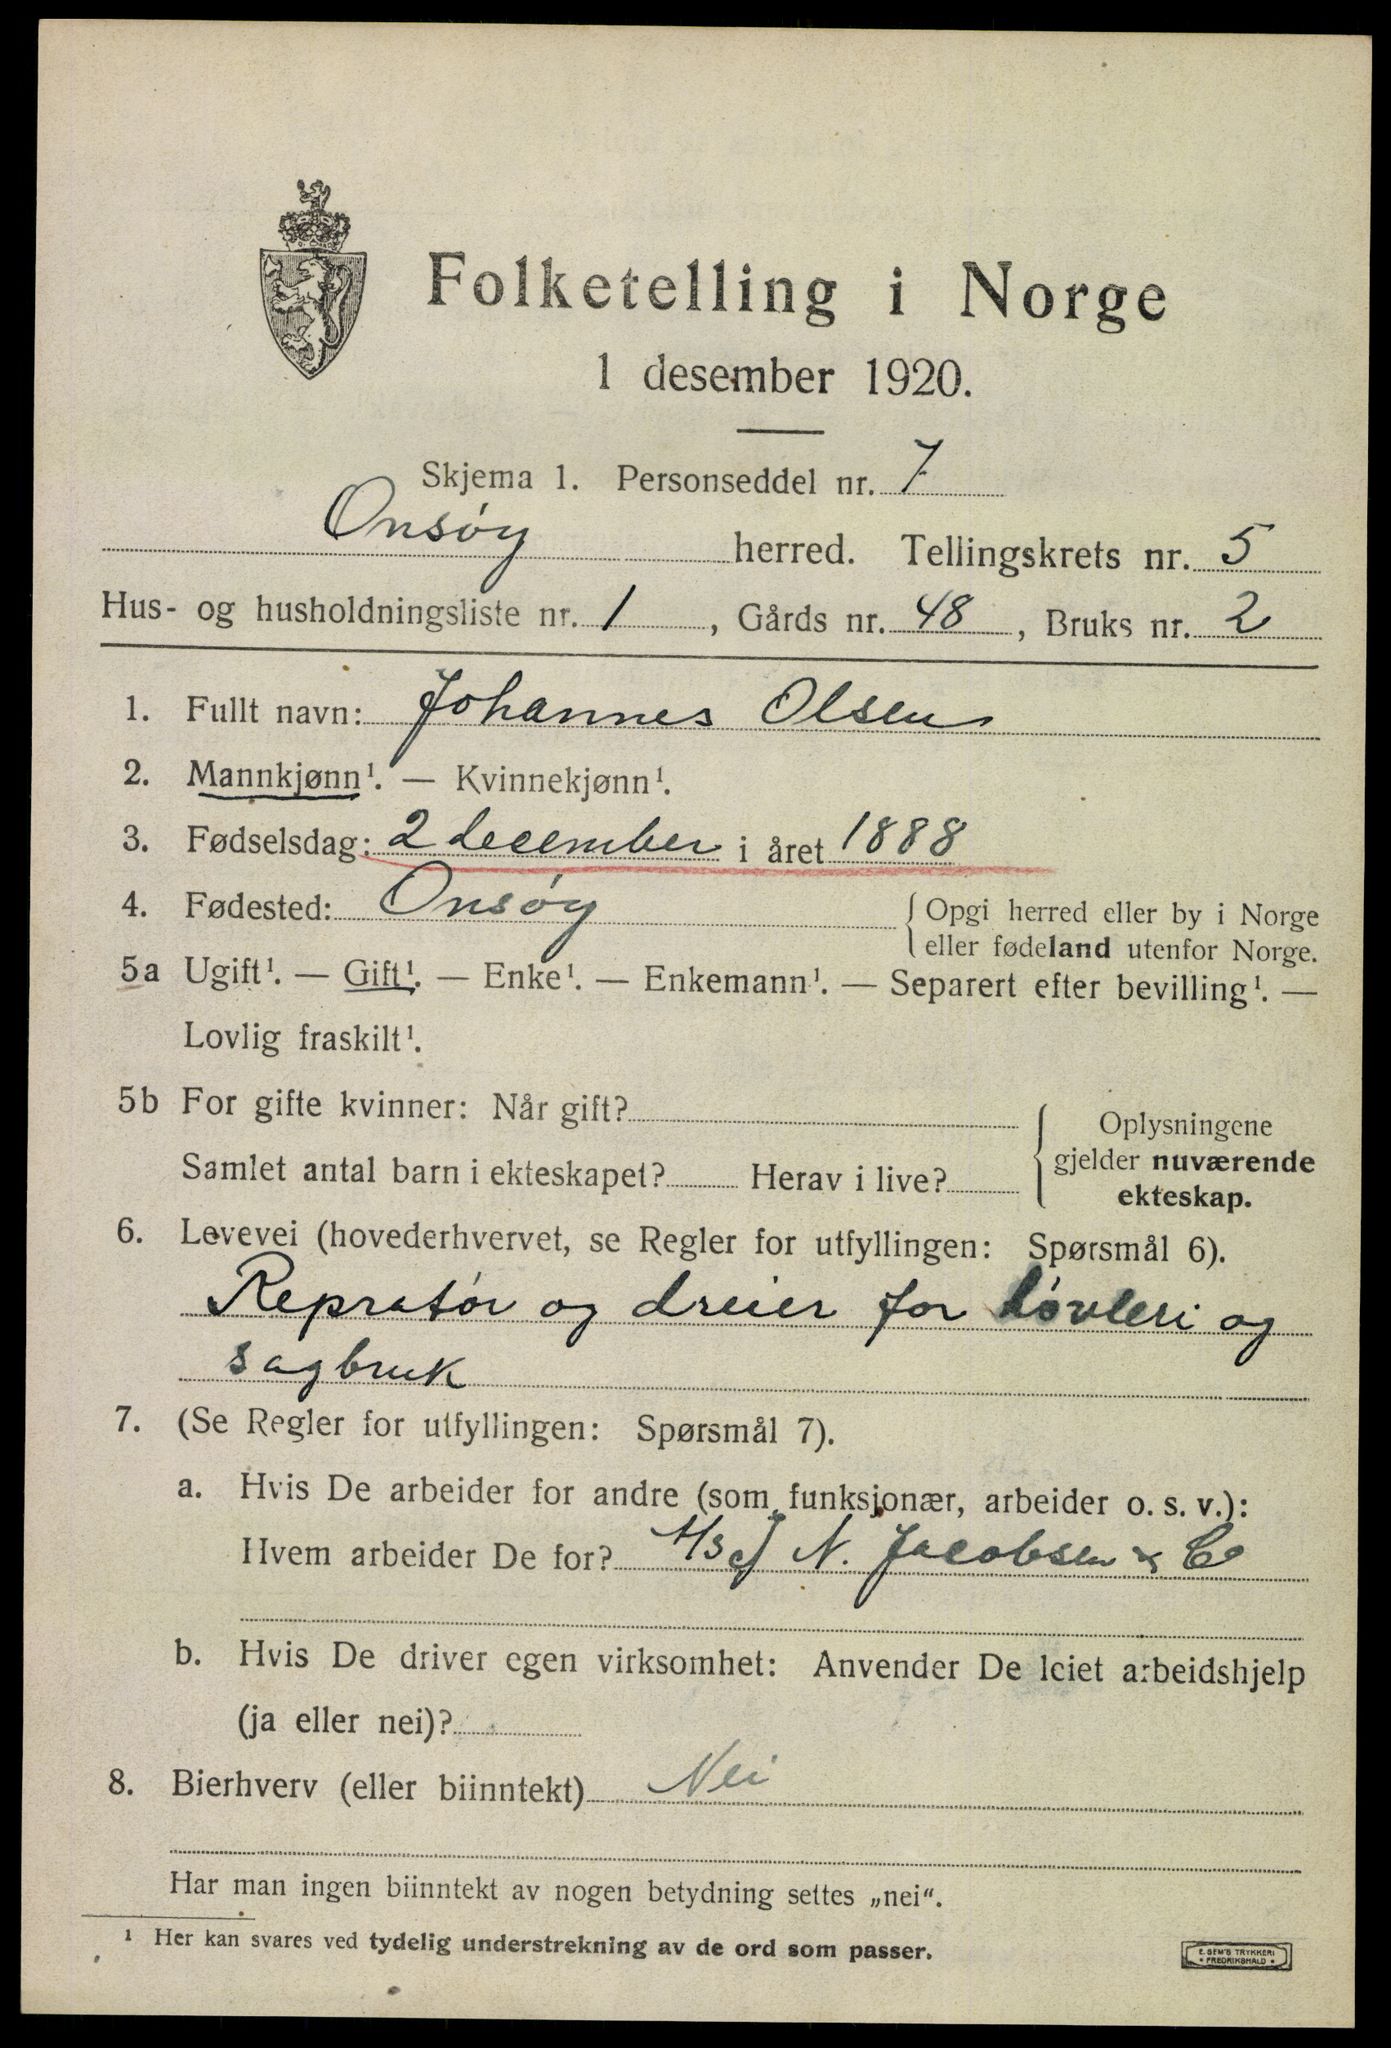 Folketelling i Norge
1 desember 1920.
Skjema 1. Personseddel nr. 7
Onsøy herred. Tellingskrets nr. 5
Hus- og husholdningsliste nr. 1, Gårds nr. 48, Bruks nr. 2
1. Fullt navn: Johannes Olsen
2. Mannkjønn¹. — Kvinnekjønn¹.
3. Fødselsdag: 2 december i året 1888
4. Fødested: Onsøy { Opgi herred eller by i Norge
eller fødeland utenfor Norge.
5a Ugift¹. — Gift¹. — Enke¹. — Enkemann¹. — Separert efter bevilling¹. —
Lovlig fraskilt¹.
5b For gifte kvinner: Når gift? { Oplysningene
gjelder nuværende
ekteskap.
Samlet antal barn i ekteskapet? Herav i live?
6. Levevei (hovederhvervet, se Regler for utfyllingen: Spørsmål 6).
Repratør og dreier for høvleri og
sagbruk
7. (Se Regler for utfyllingen: Spørsmål 7).
a. Hvis De arbeider for andre (som funksjonær, arbeider o. s. v.):
Hvem arbeider De for? J N. Jacobsen & Co
b. Hvis De driver egen virksomhet: Anvender De leiet arbeidshjelp
(ja eller nei)?
8. Bierhverv (eller biinntekt) Nei
Har man ingen biinntekt av nogen betydning settes „nei“.
¹ Her kan svares ved tydelig understrekning av de ord som passer.
E. SEM'S TRYKKERI
FREDRIKSHALD